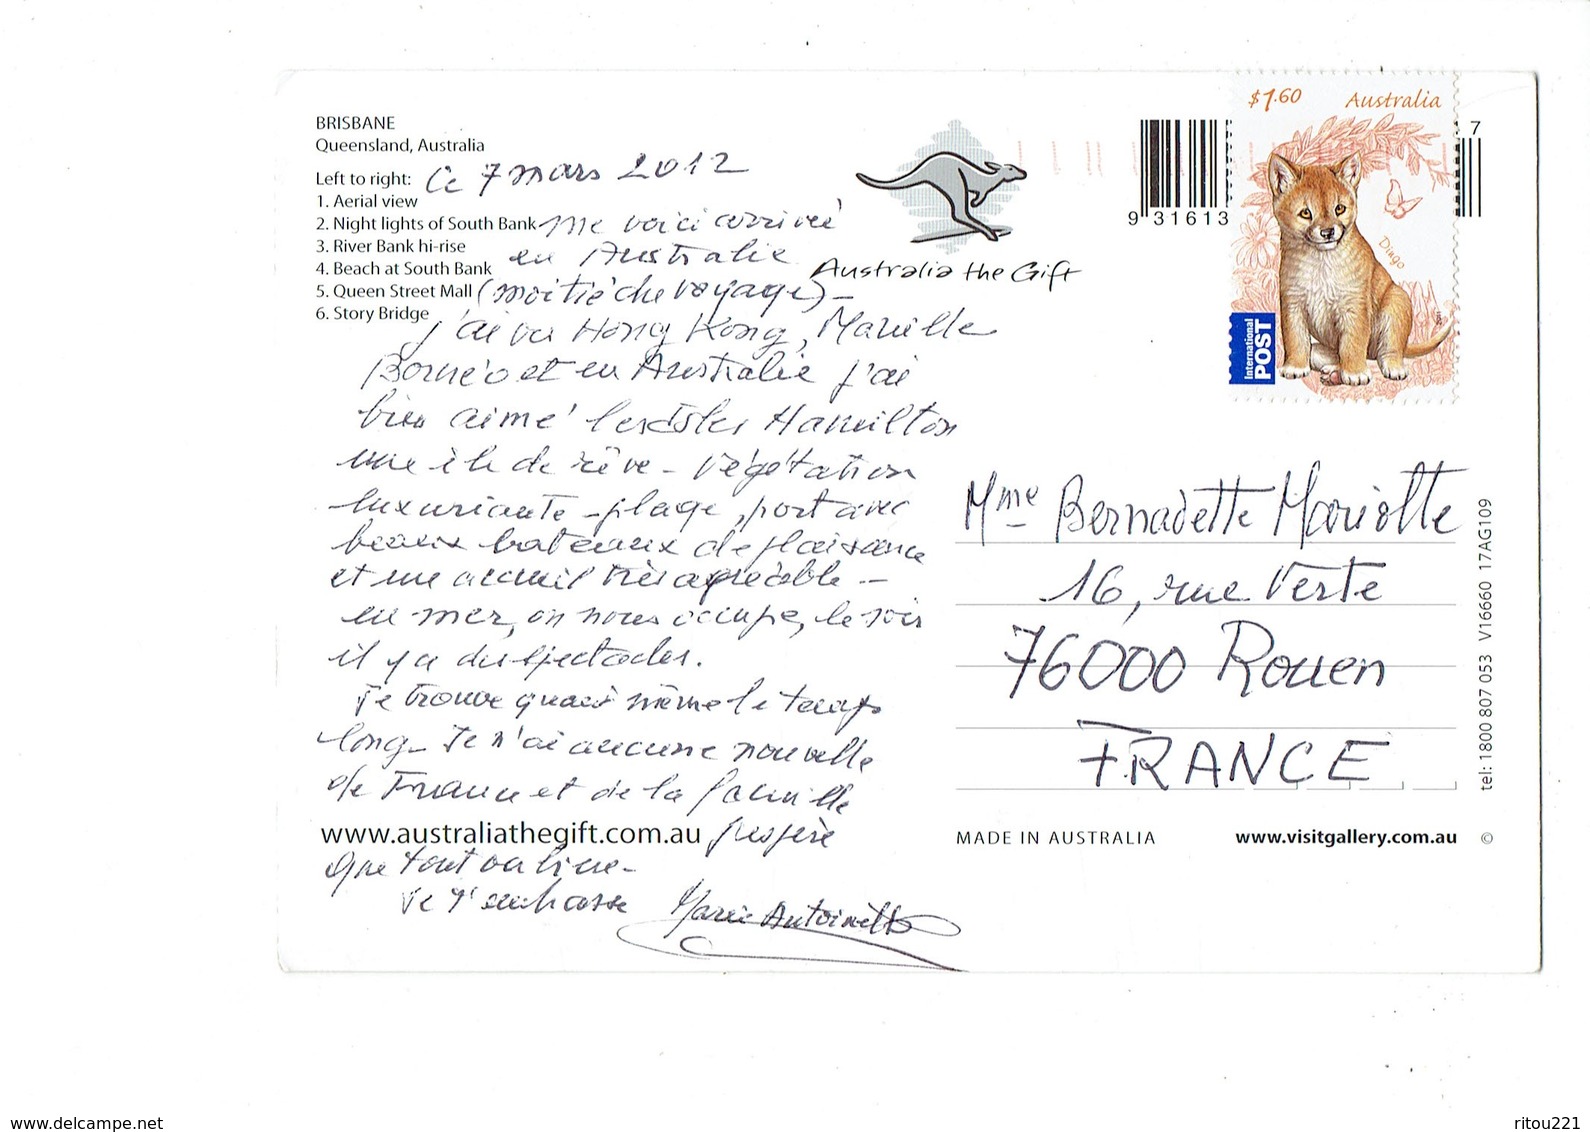 BRISBANE
Queensland, Australia
Left to right:
1. Aerial view
2. Night lights of South Bank
3. River Bank hi-rise
4. Beach at South Bank
5. Queen Street Mall
6. Story Bridge
Ce 7 mars 2012
me voici arrivée
en Australie
(moitié du voyage) -
j'ai vu Hong Kong, Manille
Bornéo et en Australie j'ai
bien aimé les îles Hamilton
une île de rêve - végétation
luxuriante - plage, port avec
beaux bateaux de plaisance
et un accueil très agréable -
en mer, on nous occupe, le soir
il y a des spectacles.
Je trouve quand même le temps
long - Je n'ai aucune nouvelle
de France et de la famille
j'espère
que tout va bien -
Je t'embrasse Marie Antoinette
www.australiathegift.com.au
Australia the Gift
9 31613
7
$1.60 Australia
Dingo
International
POST
Mme Bernadette Mariolte
16, rue Verte
76000 Rouen
FRANCE
MADE IN AUSTRALIA
www.visitgallery.com.au ©
tel: 1800 807 053 V16660 17AG109
www.delcampe.net
ritou221